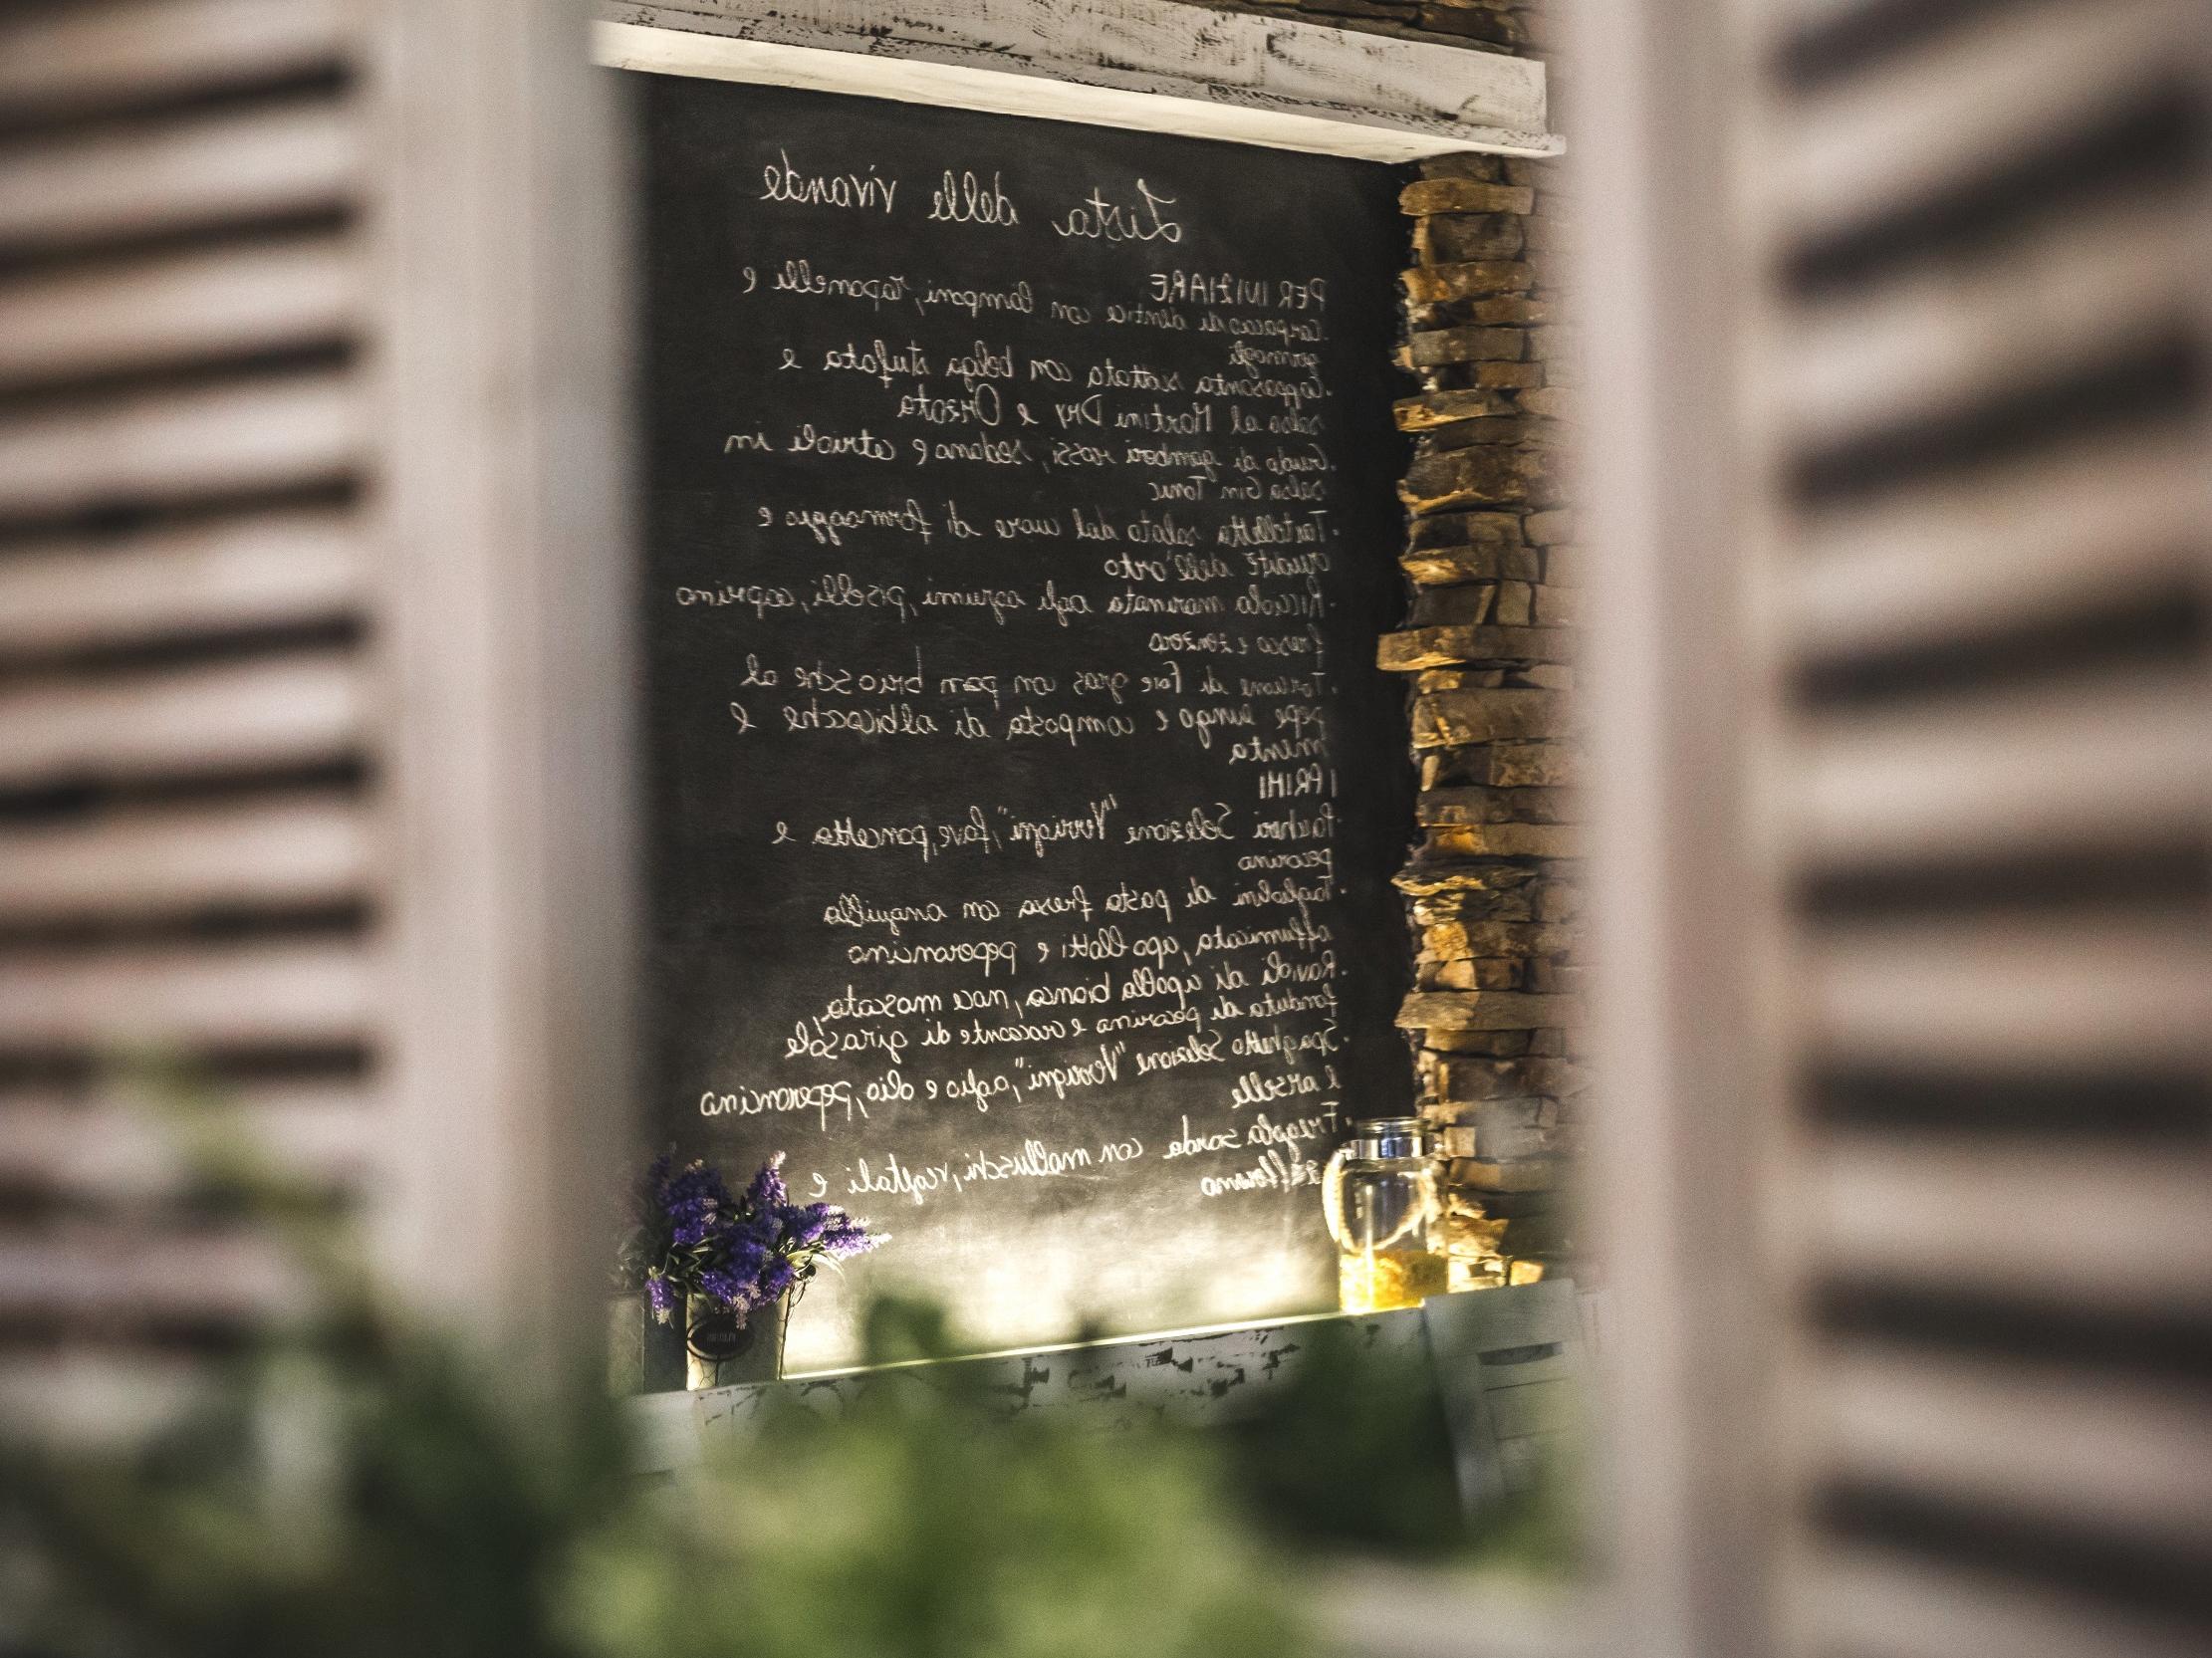 Lista delle vivande
PER INIZIARE
·Carpaccio di dentice con lamponi, rapanelli e
germogli
·Cappasanta scottata con belga stufata e
salsa al Martini Dry e Orzata
·Crudo di gamberi rossi, sedano e cetrioli in
salsa Gin Tonic
·Tartelletta salata dal cuore di formaggio e
crudité dell'orto
·Ricciola marinata agli agrumi, piselli, caprino
fresco e zenzero
·Torcione di foie gras con pan brioche al
pepe lungo e composta di albicocche e
menta
I PRIMI
·Paccheri Selezione "Verrigni", fave, pancetta e
pecorino
·Tagliolini di pasta fresca con anguilla
affumicata, cipollotti e peperoncino
·Ravioli di cipolla bianca, noce moscata,
fonduta di pecorino e croccante di girasole
·Spaghetto Selezione "Verrigni", aglio e olio, peperoncino
e arselle
·Fregola sarda con molluschi, vegetali e
zafferano